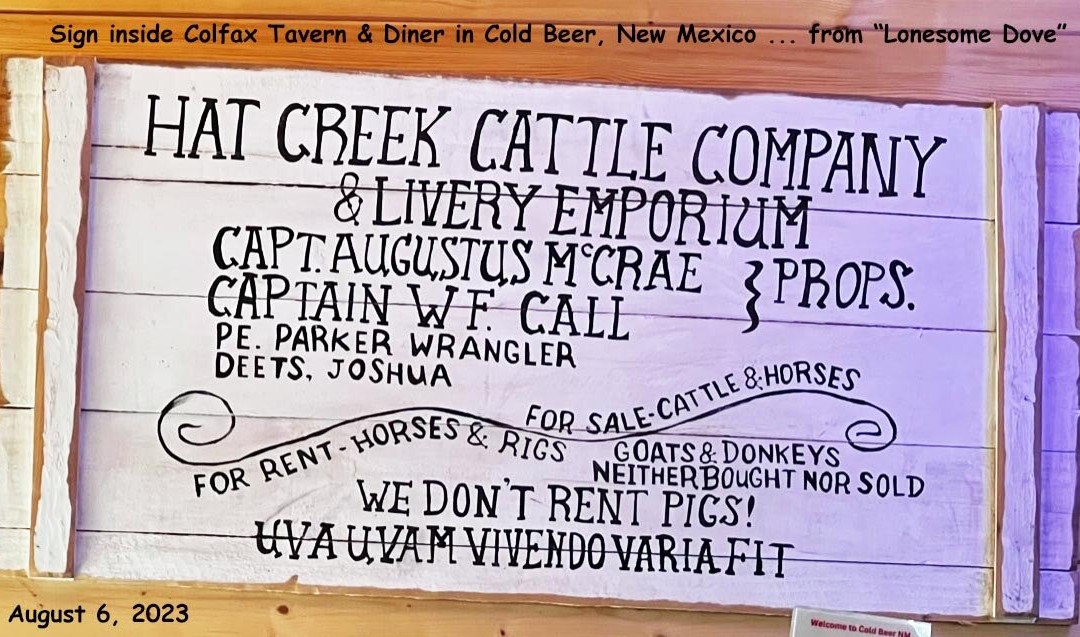 Sign inside Colfax Tavern & Diner in Cold Beer, New Mexico ... from “Lonesome Dove”
HAT CREEK CATTLE COMPANY
& LIVERY EMPORIUM
CAPT. AUGUSTUS McCRAE } PROPS.
CAPTAIN W F. CALL
P.E. PARKER WRANGLER
DEETS, JOSHUA
FOR SALE-CATTLE & HORSES
FOR RENT-HORSES & RIGS
GOATS & DONKEYS
NEITHER BOUGHT NOR SOLD
WE DON'T RENT PIGS!
UVA UVAM VIVENDO VARIA FIT
August 6, 2023
Welcome to Cold Beer NM